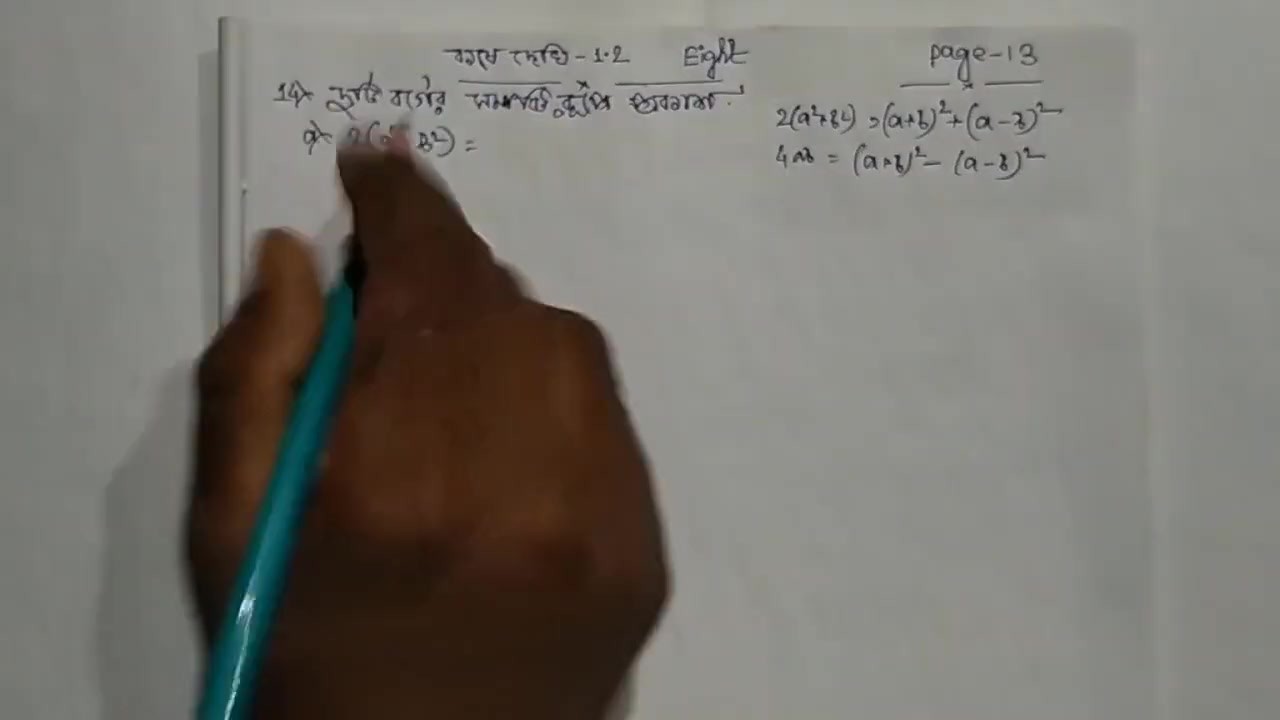 কষে দেখি - 1.2 Eight page-13
14> দুটি বর্গের সমষ্টি রূপে প্রকাশ
2(a²+b²) = (a+b)² + (a-b)²
4ab = (a+b)² - (a-b)²
b²) =